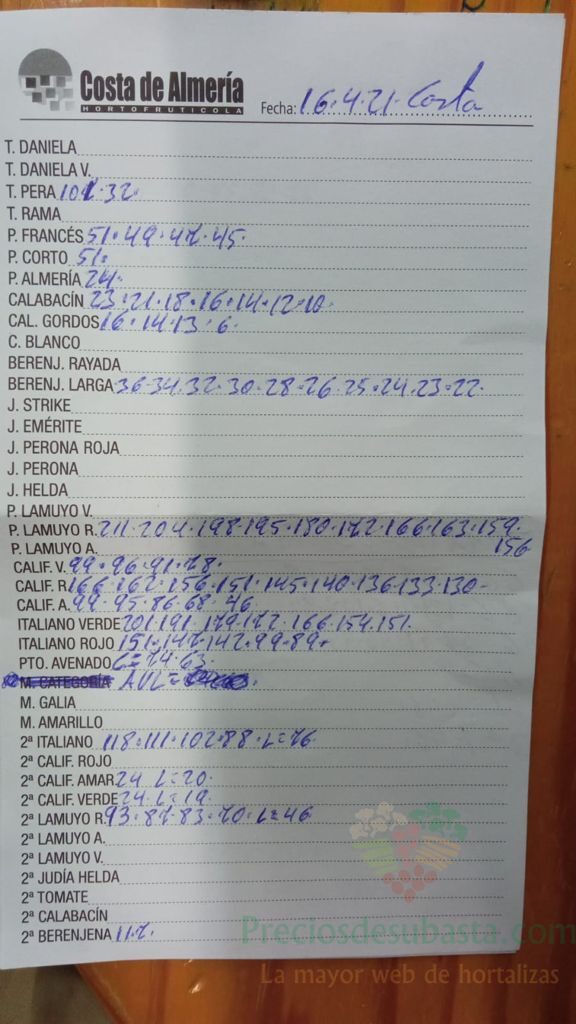 Costa de Almería
HORTOFRUTICOLA
Fecha: 16.4.21. Costa
T. DANIELA
T. DANIELA V.
T. PERA 32.
T. RAMA
P. FRANCÉS 51. 49. 47. 45.
P. CORTO 51.
P. ALMERÍA 24.
CALABACÍN 23. 21. 18. 16. 14. 12. 10.
CAL. GORDOS 16. 14. 13. 6.
C. BLANCO
BERENJ. RAYADA
BERENJ. LARGA 36. 34. 32. 30. 28. 26. 25. 24. 23. 22.
J. STRIKE
J. EMÉRITE
J. PERONA ROJA
J. PERONA
J. HELDA
P. LAMUYO V.
P. LAMUYO R. 211. 204. 198. 195. 180. 172. 166. 163. 159.
P. LAMUYO A. 156
CALIF. V. 99. 96. 91. 78.
CALIF. R. 166. 162. 156. 151. 145. 140. 136. 133. 130-
CALIF. A. 99. 95. 86. 68. 46
ITALIANO VERDE 201. 191. 179. 172. 166. 154. 151.
ITALIANO ROJO 151. 147. 142. 99. 89.
PTO. AVENADO L= 74. 63.
M. CATEGORÍA AVL=
M. GALIA
M. AMARILLO
2ª ITALIANO 118. 111. 102. 88. L=76.
2ª CALIF. ROJO
2ª CALIF. AMAR. 24 L=20.
2ª CALIF. VERDE 24. L=19.
2ª LAMUYO R. 93. 87. 83. 70. L=46
2ª LAMUYO A.
2ª LAMUYO V.
2ª JUDÍA HELDA
2ª TOMATE
2ª CALABACÍN
2ª BERENJENA 17.
Preciosdesubasta.com
La mayor web de hortalizas